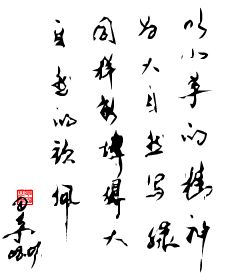 以小草的精神
为大自然写缘
同样能博得大
自然的钦佩